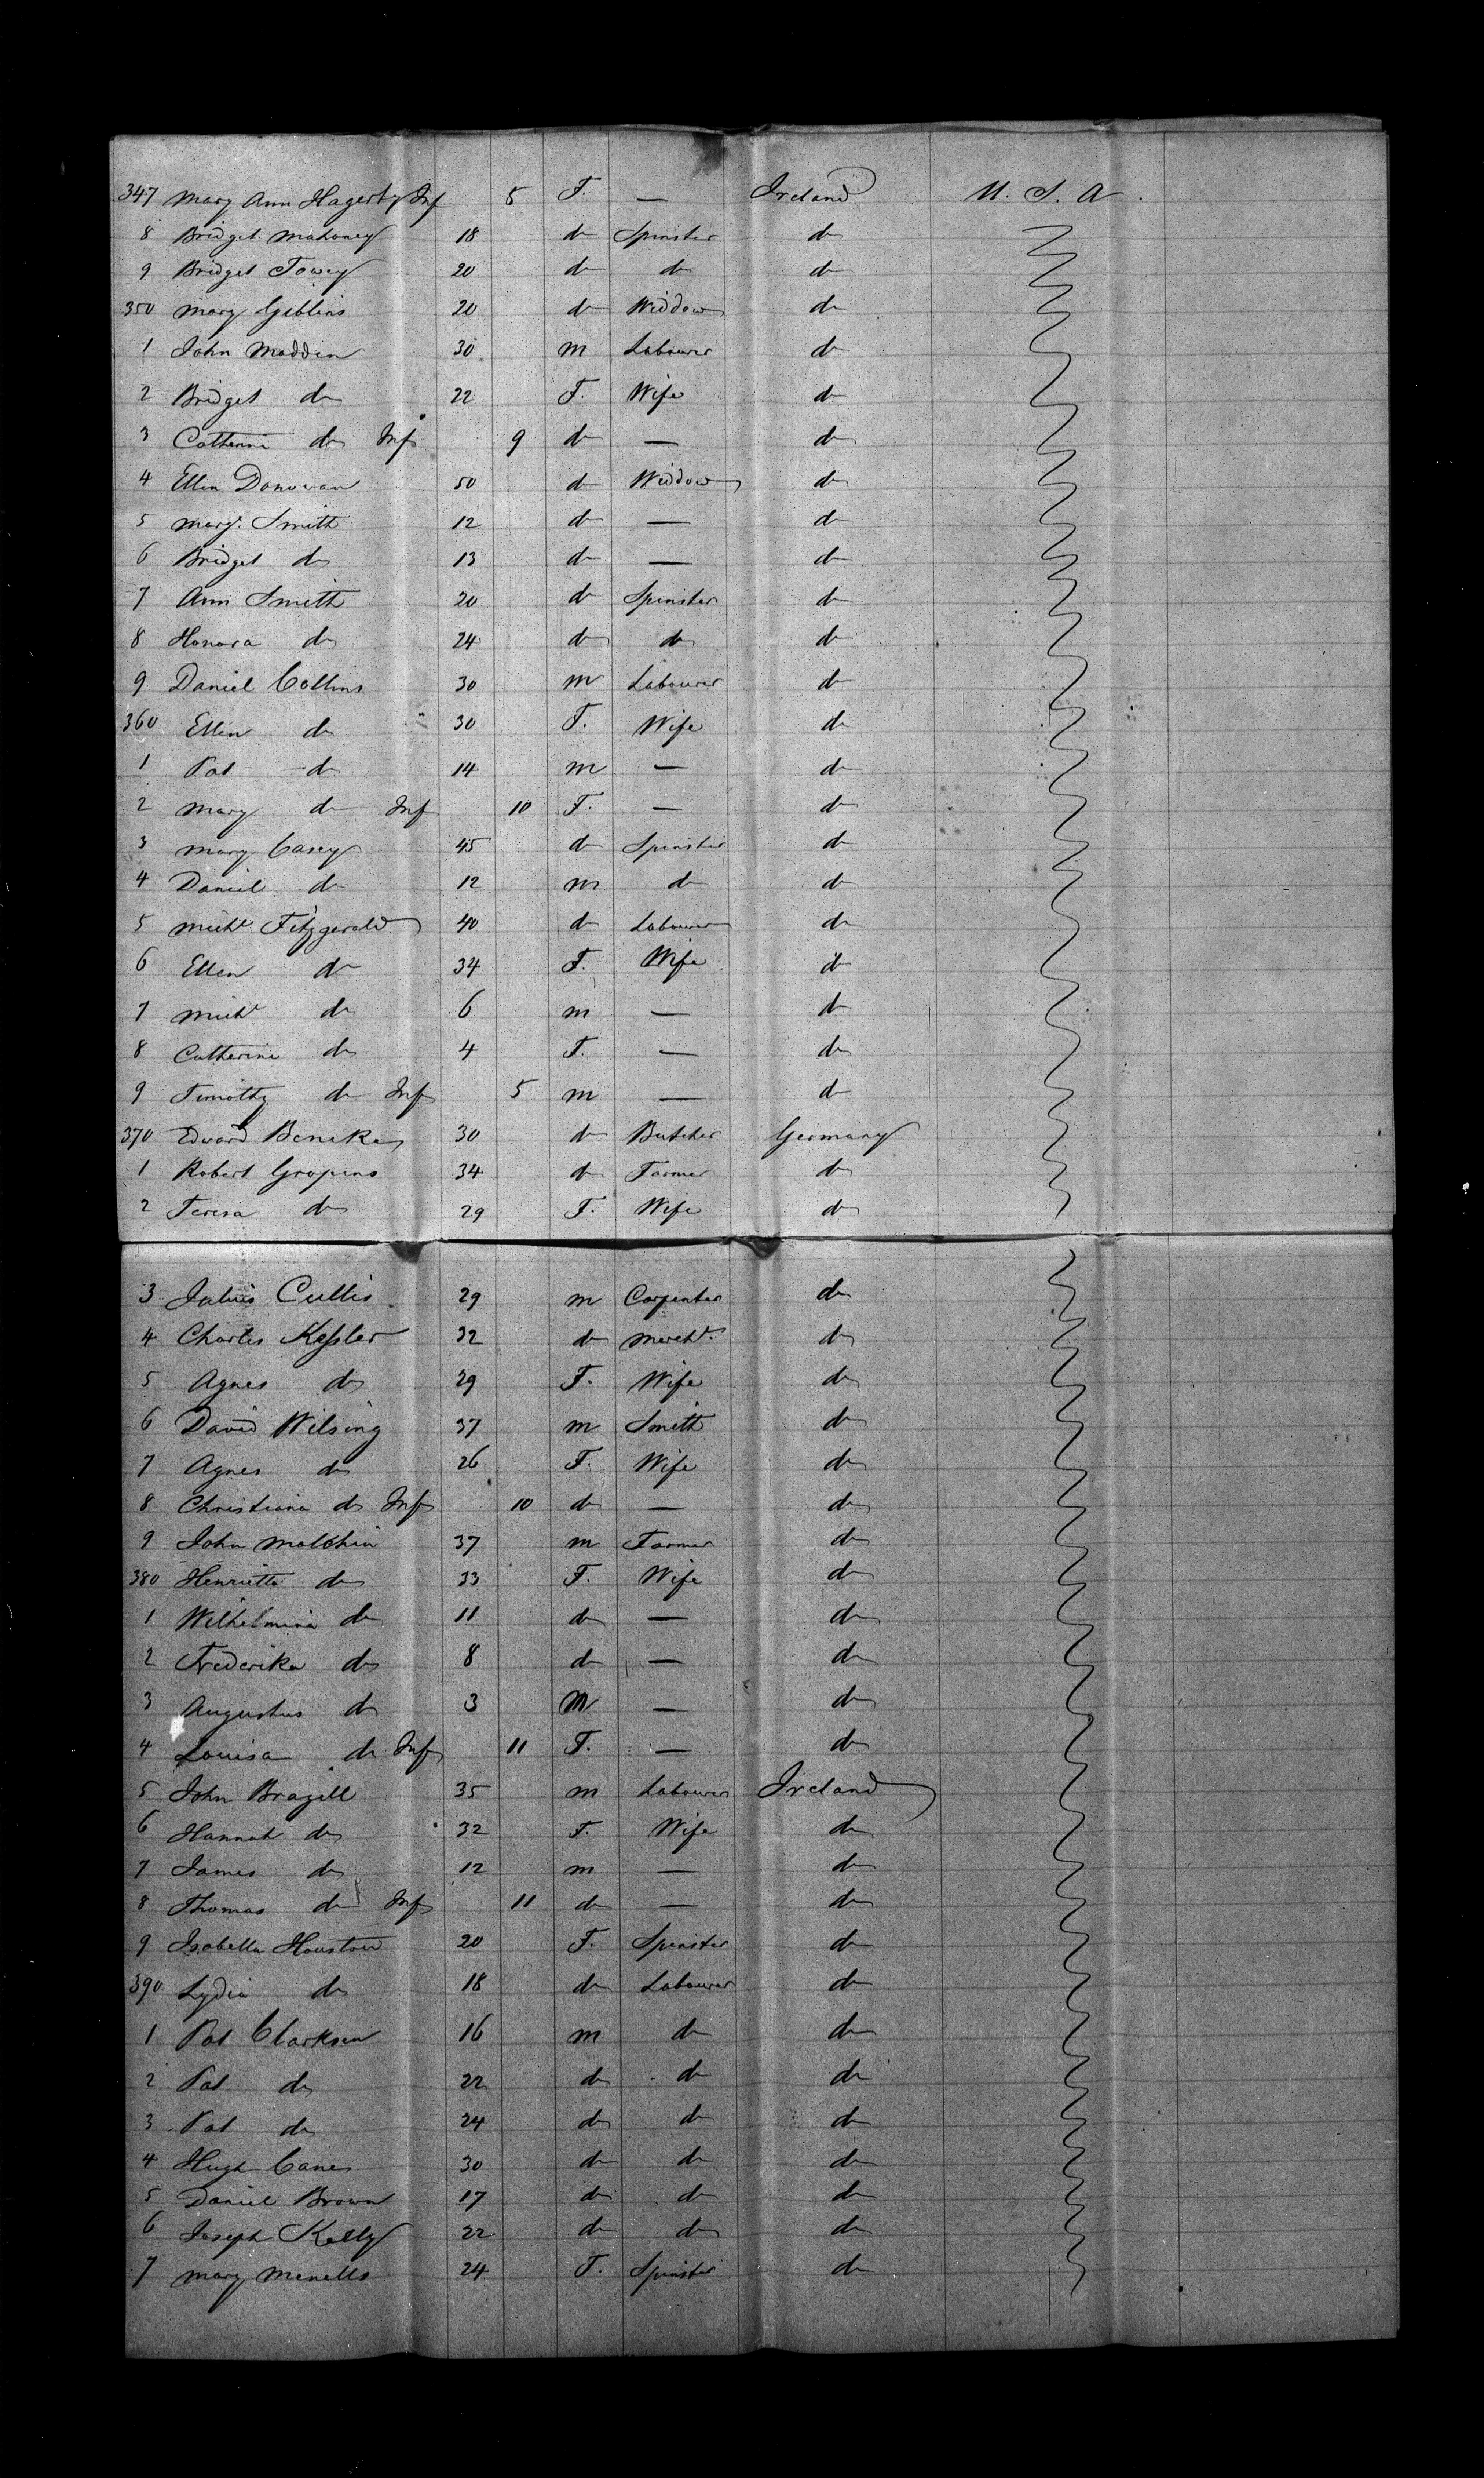 347 Mary Ann Hagerty Inf 5 F. — Ireland U. S. A.
8 Bridget Mahoney 18 do Spinster do
9 Bridget Towey 20 do do do
350 Mary Giblins 20 do Widdow do
1 John Madden 30 m Labourer do
2 Bridget do 22 F. Wife do
3 Catherine do Inf 9 do — do
4 Ellen Donovan 50 do Widdow do
5 Mary Smith 12 do — do
6 Bridget do 13 do — do
7 Ann Smith 20 do Spinster do
8 Honora do 24 do do do
9 Daniel Collins 30 m Labourer do
360 Ellen do 30 F. Wife do
1 Pat do 14 m — do
2 Mary do Inf 10 F. — do
3 Mary Casey 45 do Spinster do
4 Daniel do 12 m do do
5 Michl Fitzgerald 40 do Labourer do
6 Ellen do 34 F. Wife do
7 Michl do 6 m — do
8 Catherine do 4 F. — do
9 Timothy do Inf 5 m — do
370 Edward Beneke 30 do Butcher Germany
1 Robert Gropens 34 do Farmer do
2 Teresa do 29 F. Wife do
3 Julius Cullis 29 m Carpenter do
4 Charles Kessler 32 do Mercht. do
5 Agnes do 29 F. Wife do
6 David Wilsing 37 m Smith do
7 Agnes do 26 F. Wife do
8 Christiana do Inf 10 do — do
9 John Malchin 37 m Farmer do
380 Henrietta do 33 F. Wife do
1 Wilhelmina do 11 do — do
2 Frederika do 8 do — do
3 Augustus do 3 M — do
4 Louisa do Inf 11 F. — do
5 John Bragill 35 m Labourer Ireland
6 Hannah do 32 F. Wife do
7 James do 12 m — do
8 Thomas do Inf 11 do — do
9 Isabella Houston 20 F. Spinster do
390 Lydia do 18 do Labourer do
1 Pat Clarkson 16 m do do
2 Pat do 22 do do do
3 Pat do 24 do do do
4 Hugh Cane 30 do do do
5 Daniel Brown 17 do do do
6 Joseph Kelly 22 do do do
7 Mary Menells 24 F. Spinster do